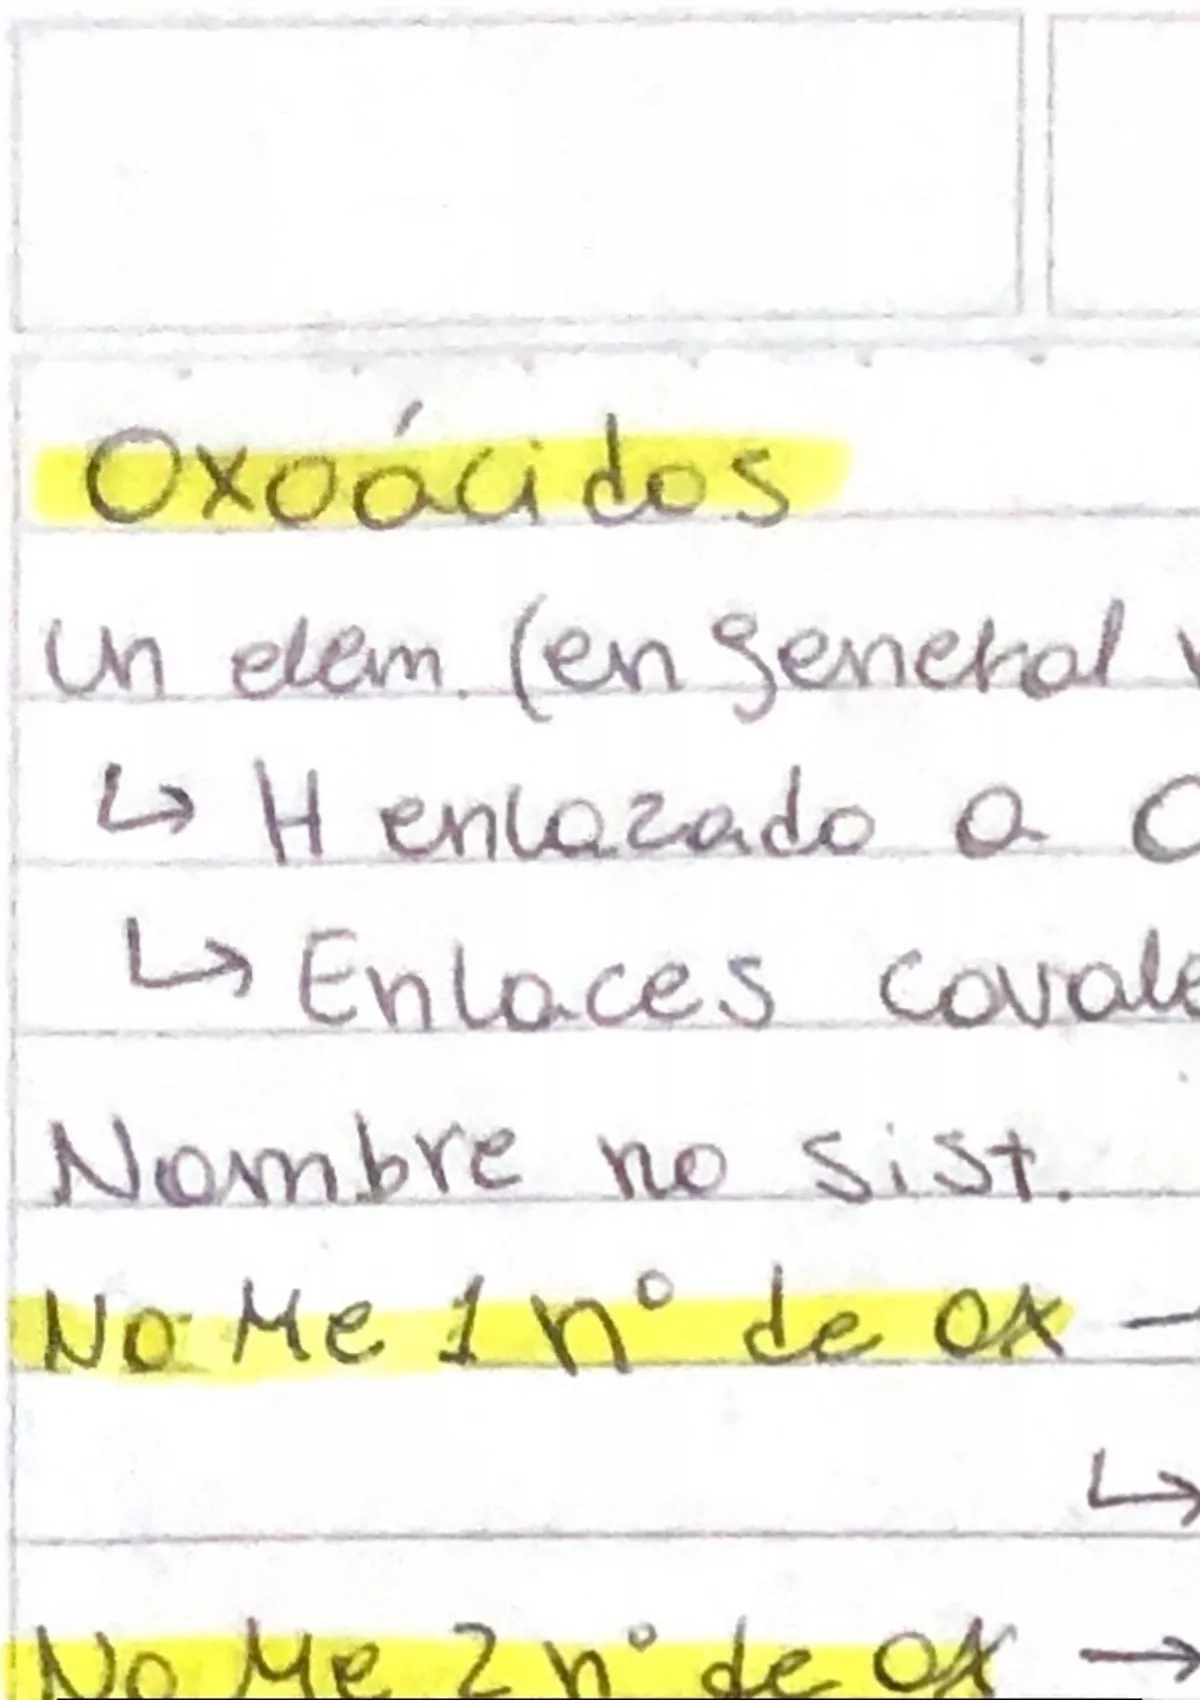 Oxoácidos
Un elem. (en general
↳ H enlazado a O
↳ Enlaces covale
Nombre no sist.
No Me 1 nº de ox –
↳
No Me 2 nº de ox →